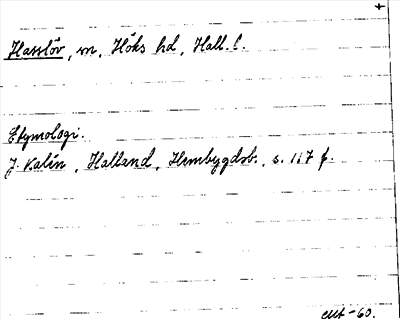 Hasslöv, sn, Höks hd, Hall. l.
Etymologi.
J. Kalén, Halland, Hembygdsb., s. 117 f.
-60.